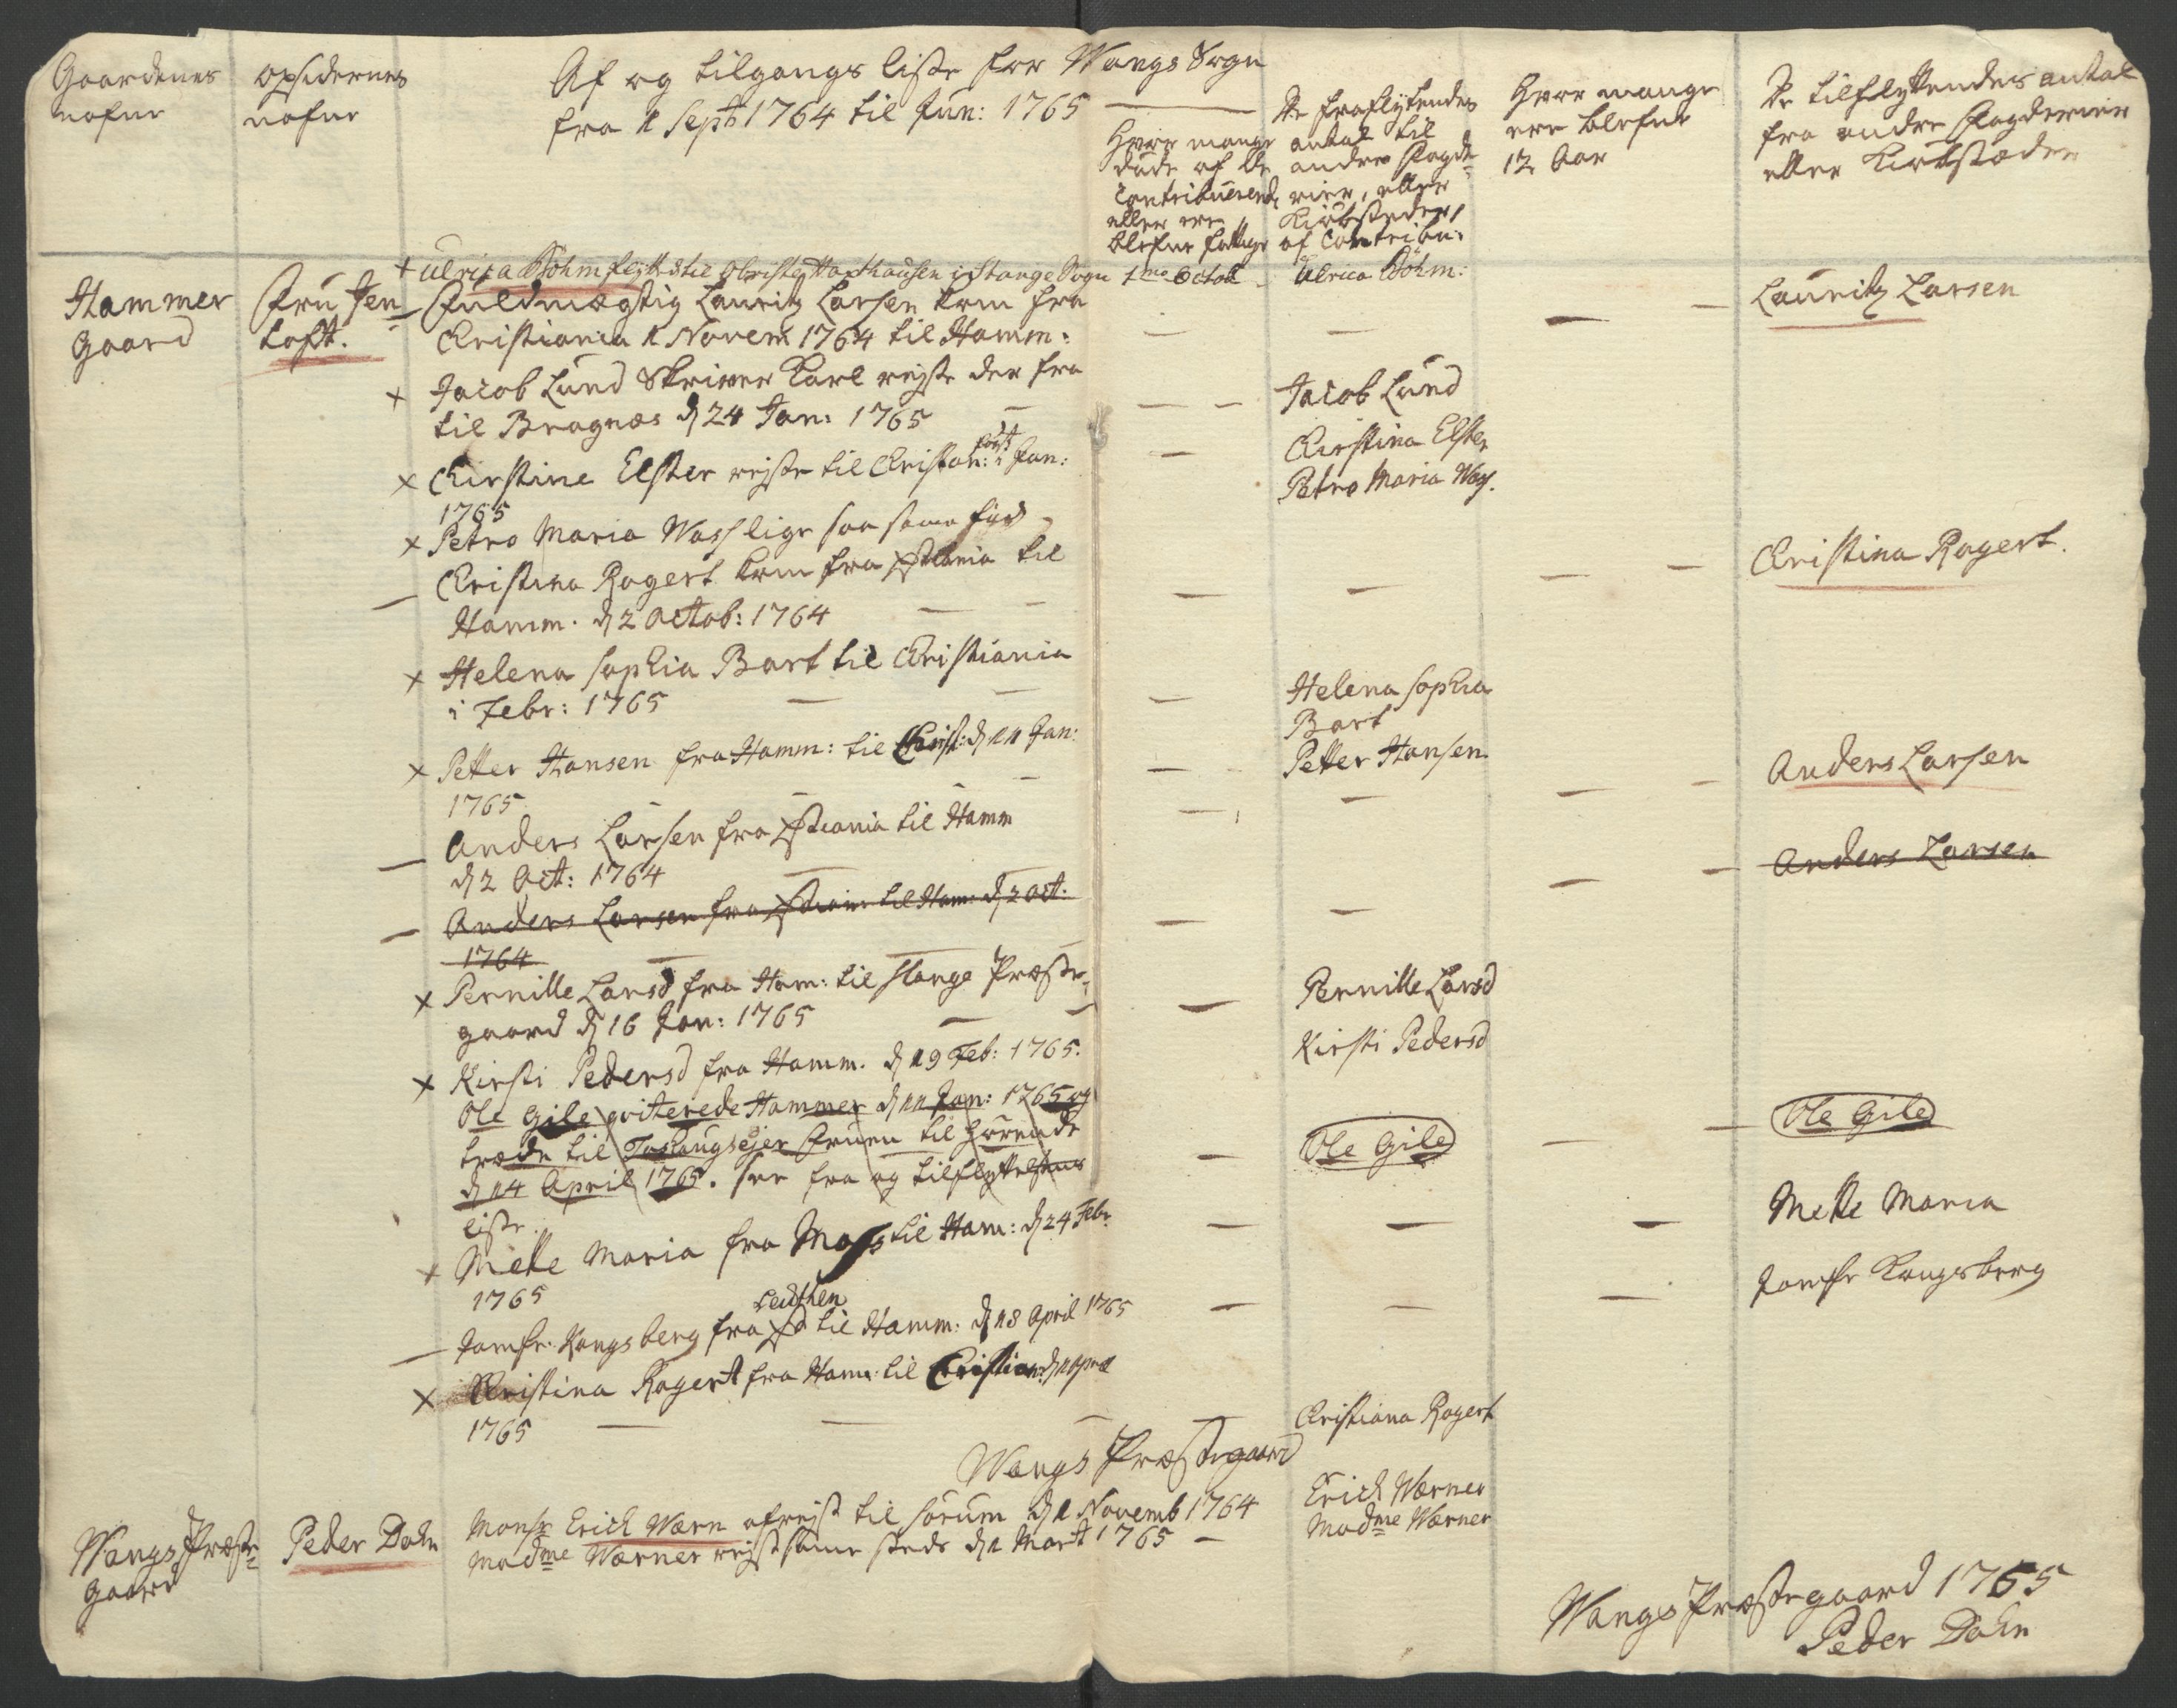 Gaardenes
nafne
opsidernes
nafne
Af og tilgangs liste for Wangs Sogn
fra 1 Sept 1764 til Jun: 1765
Hvor mange
döde af de
Contribuerende
eller ere
blefne fattige
De fraflytendes
antal til
andre Fogde-
rier, eller
Kiöbsteder,
af Contribu:
Hvor mange
ere blefne
12 Aar
De tilflyttendes antal
fra andre Fogderier
eller Kiöbstæder
Hammer
Gaard
Fru Jen
toft.
+ Ulrica Böhm flytted til Obrister Haxthausen i Stange Sogn 1me Octob - Ulrica Böhm:
- Fuldmægtig Lauritz Larsen kom fra
Christiania 1 Novem 1764 til Hamm: - - - - Lauritz Larsen
x Jacob Lund Skriver Karl rejste der fra
til Bragnæs d 24 Jan: 1765 - - - Jacob Lund
x Kirstine Elster rejste til Christian: i Jan:
1765 - Kirstina Elster
x Petro Maria Wass lige saa samme tiid - Petro Maria Was.
- Christina Rogert kom fra Xstiania til
Hamm. d 2 Octob: 1764 - - - - - - Christina Rogert.
x Helena Sophia Bart til Christiania
i Febr: 1765 - - - Helena Sophia
Bart
x Petter Hansen fra Hamm: til Christ: d 11 Jan:
1765 - - Petter Hansen
- Anders Larsen fra Xstiania til Hamm
d 2 Oct: 1764 - - - - - Anders Larsen
- Anders Larsen fra Xstiania til Ham: d 2 Oct:
1764 - - - - - - Anders Larsen
x Pernille Larsd fra Ham: til Stange Præste-
gaard d 16 Jan: 1765 - - - Pernille Larsd
x Kirsti Pedersd fra Hamm. d 19 Feb: 1765. Kirsti Pedersd
Ole Gile qviterede Hammer d 11 Jan: 1765 og
træde til Justitsraad Fruen til
d 14 April 1765. see fra og tilflyttelsens
liste. - Ole Gile - - Ole Gile
x Mette Maria fra Moss til Ham: d 24 Febr.
1765 - - - Mette Maria
Leuthen
- Jomfr. Kongsberg fra til Hamm: d 18 April 1765 - - - Jomfr Kongsberg
x Christina Rogert fra Hamm. til Christian: d 1 April
1765 - - - - Christiana Rogert
Wangs Præstegaard
Wangs Præste-
Gaard
Peder Dahn
Monsr Erich Wærn afrejst til Sörum d 1 Novemb 1764 Erich Wærner
Madme Wærner rejst samme steds d 1 Mart 1765 - Madme Wærner
Wangs Præstegaard 1765
Peder Dahn